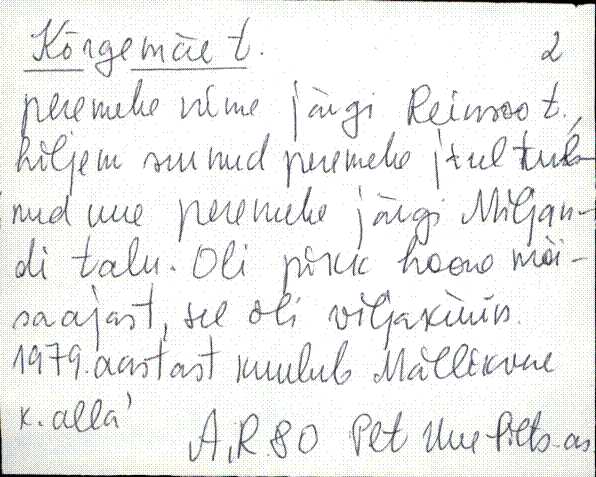 Kõrgemäe t. 2
peremehe nime järgi Reinsoo t.,
hiljem surnud peremehe j. tul
nud uue peremehe järgi Miljan-
di talu. Oli pikk hoone mõi-
saajast, see oli viljaküün.
1979. aastast kuulub Mällikvere
k. alla'
A.R. 80 Plt Uue-Põltsamaa